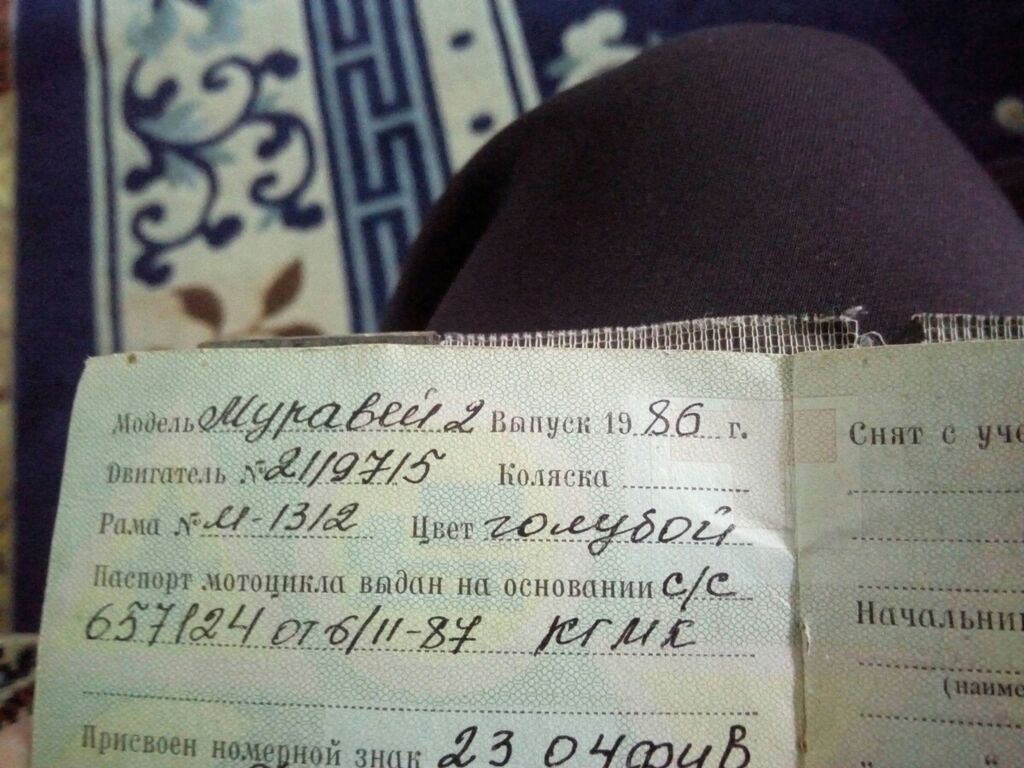 Модель Муравей 2 Выпуск 1986 г.
Двигатель № 2119715 Коляска
Рама № М-1312 Цвет голубой
Паспорт мотоцикла выдан на основании с/с
657124 от 6/II-87 КГМК
Присвоен номерной знак 23 04 фив
Снят с уче
Начальник
(наиме